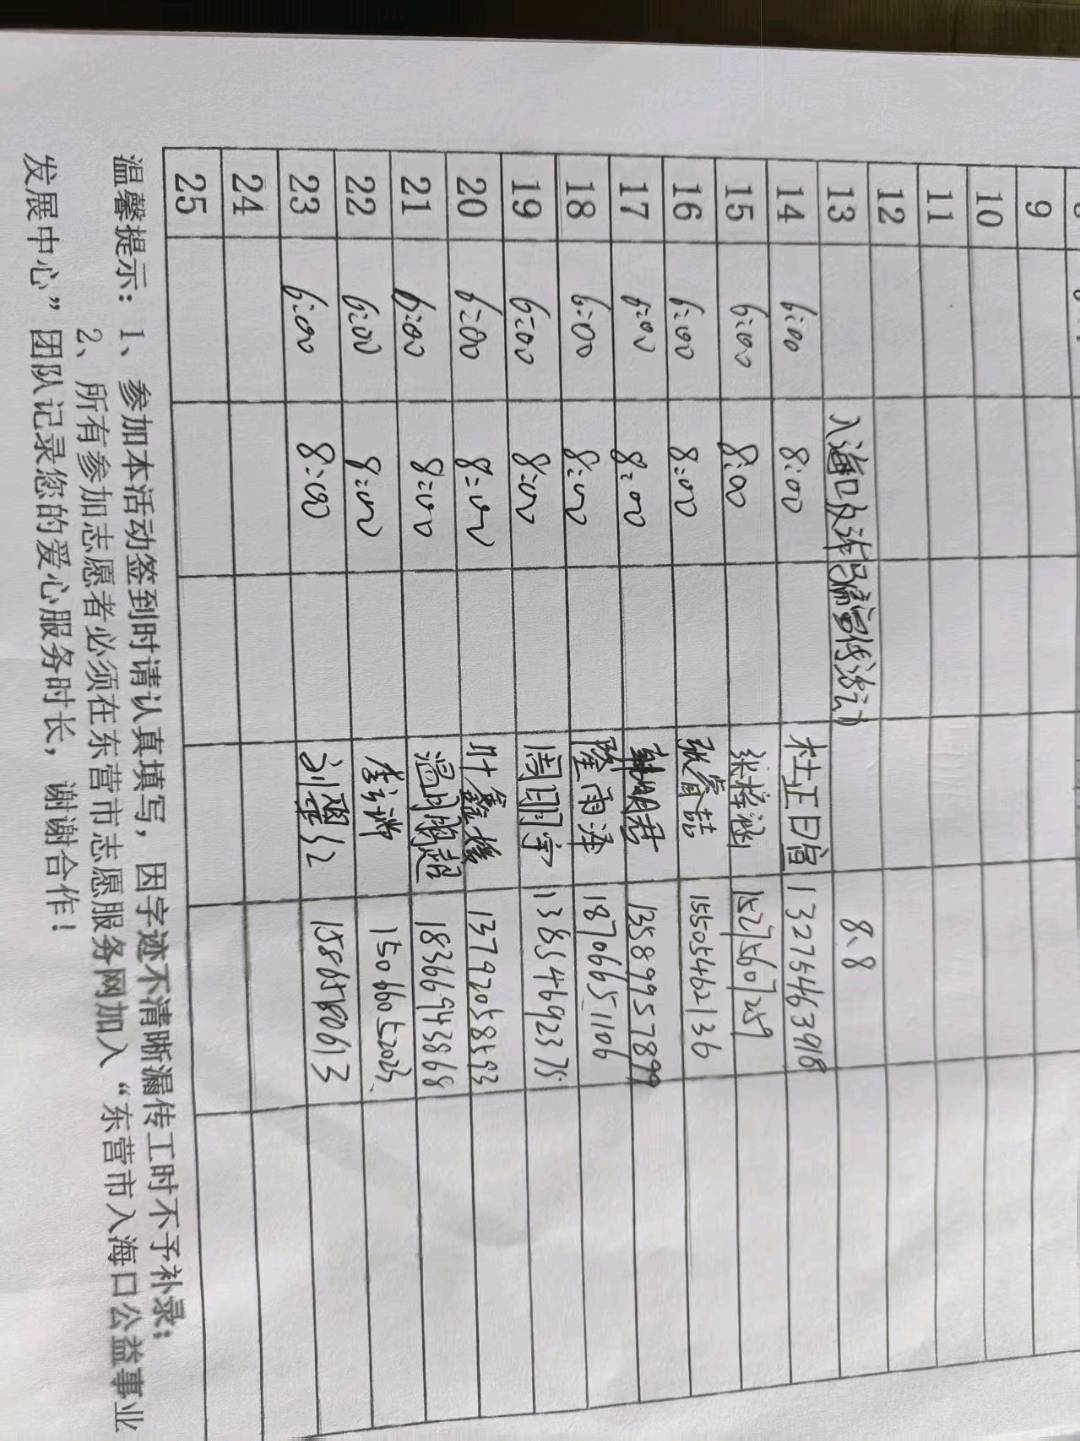 9
10
11
12
13 入海口反诈骗宣传活动 8、8
14 6:00 8:00 杜正日 13275463918
15 6:00 8:00 张梓涵 15275607259
16 6:00 8:00 张睿喆 15505462136
17 6:00 8:00 韩明君 13589957899
18 6:00 8:00 隆雨泽 18706651106
19 6:00 8:00 周玥宇 13854692375
20 6:00 8:00 叶鑫 13792058593
21 6:00 8:00 温 超 18366943868
22 6:00 8:00 李 15066052023
23 6:00 8:00 刘 15865780613
24
25
温馨提示：1、参加本活动签到时请认真填写，因字迹不清晰漏传工时不予补录；
2、所有参加志愿者必须在东营市志愿服务网加入“东营市入海口公益事业
发展中心”团队记录您的爱心服务时长，谢谢合作！